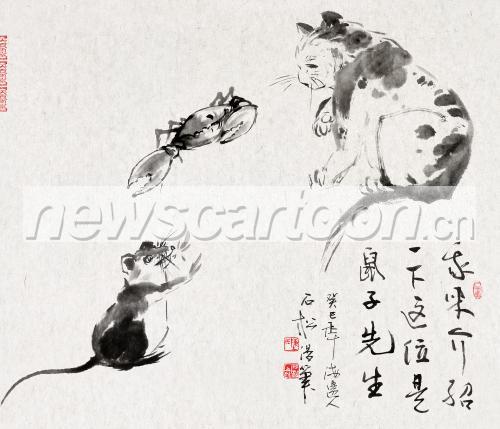 我来介绍
一下这位是
鼠子先生
癸巳年海边人
石松
笔
newscartoon.cn